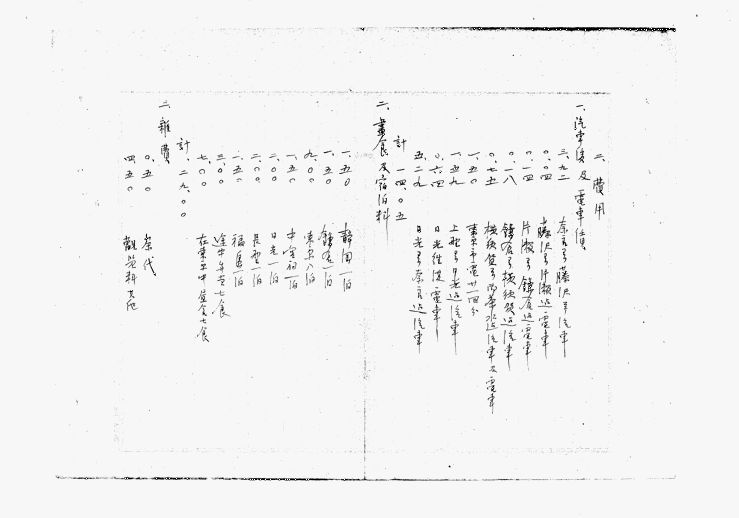 二、費用
一、汽車賃及電車賃
三.九二 奈良ヨリ藤沢マデ汽車
〇.〇四 藤沢ヨリ片瀬迄電車
〇.一四 片瀬ヨリ鎌倉迄電車
〇.一八 鎌倉ヨリ横須賀迄汽車
〇.七五 横須賀ヨリ 迄汽車及電車
一.五〇 東京市電廿一回分
一.五九 上野ヨリ日光迄汽車
〇.六四 日光往復電車
五.二九 日光ヨリ奈良迄汽車
計 一四.〇五
二、昼食及宿泊料
一.五〇 静岡一泊
一.五〇 鎌倉一泊
九.〇〇 東京六泊
一.五〇 中宮祠一泊
二.〇〇 日光一泊
二.〇〇 一泊
一.五〇 福島一泊
三.〇〇 途中弁当七食
七.〇〇 在東京中昼食七食
計、二九.〇〇
三、雑費
〇.五〇 茶代
四.五〇 観覧料其他